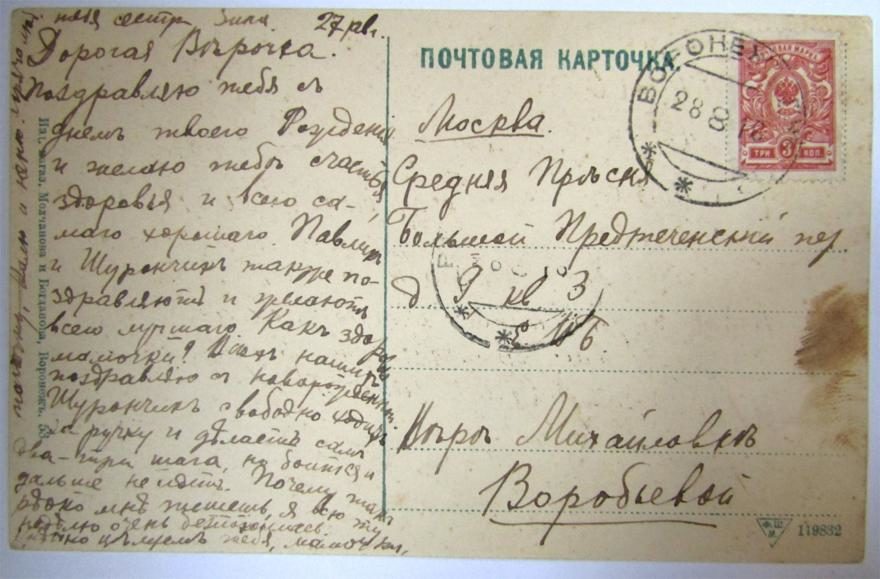 твоя сестра Зина
27 авг.
Дорогая Вѣрочка.
Поздравляю тебя съ
днемъ твоего Рожденія
и желаю тебѣ счастья
здоровья и всего са-
маго хорошаго. Павликъ
и Шурончикъ также по-
здравляютъ и желаютъ
всего лучшаго. Какъ здоровье
мамочки? Всѣхъ нашихъ
поздравляю съ новорожденной.
Шурончикъ свободно ходитъ
за ручку и дѣлаетъ самъ
два-три шага, но боится и
дальше не идетъ. Почему такъ
рѣдко мнѣ пишешь, я всю
недѣлю очень беспокоилась
цѣлуемъ тебя, мамочку,
Изд. магаз. Молчанова и Богданова, Воронежъ. 53
ПОЧТОВАЯ КАРТОЧКА.
ВОРОНЕЖ
28 8
ТРИ 3 КОП
Москва.
Средняя Прѣсня
Большой Предтеченскій пер
д 9 кв 3
Вѣрѣ Михайловнѣ
Воробьевой
Ф. Ш. М.
119832